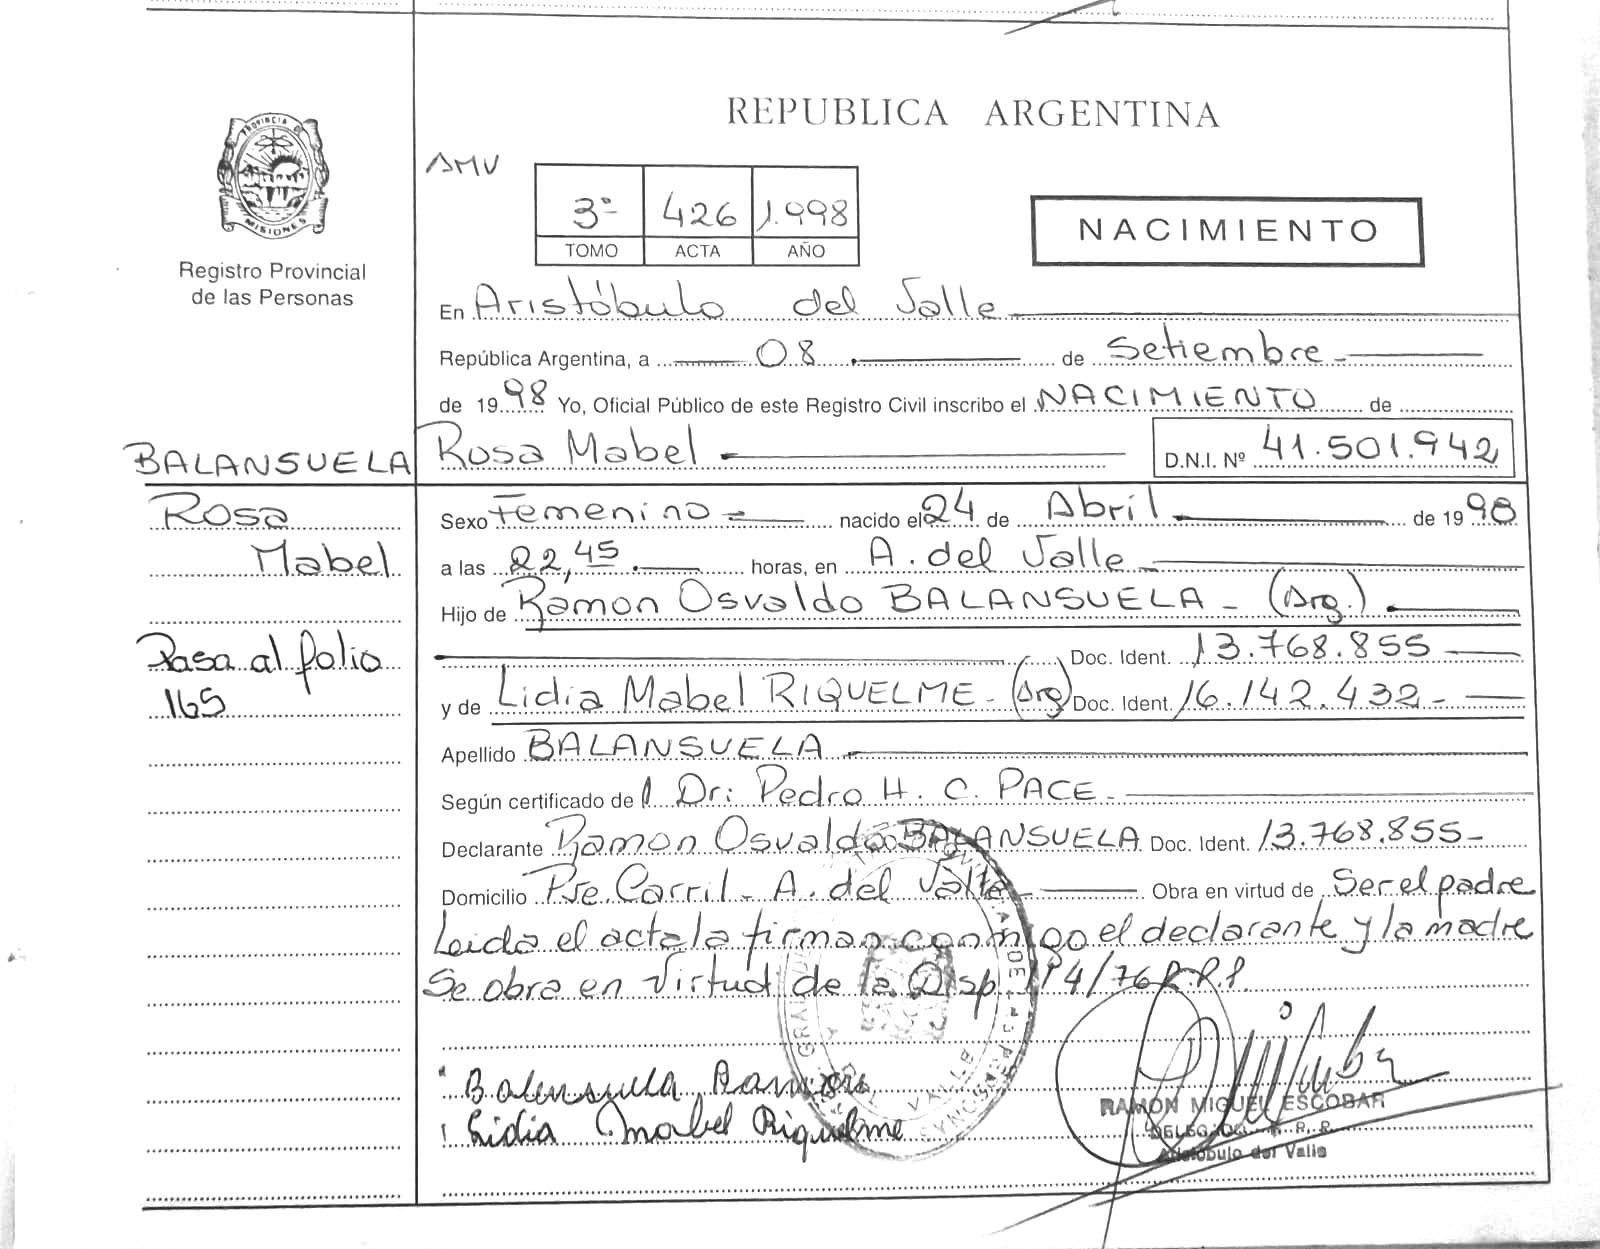 REPUBLICA ARGENTINA
PROVINCIA DE
MISIONES
Registro Provincial
de las Personas
AMV
3º 426 1.998
TOMO ACTA AÑO
NACIMIENTO
En Aristóbulo del Valle
República Argentina, a 08 de Setiembre
de 1998 Yo, Oficial Público de este Registro Civil inscribo el NACIMIENTO de
BALANSUELA Rosa Mabel D.N.I. Nº 41.501.942
Rosa Sexo Femenino nacido el 24 de Abril de 1998
Mabel a las 22,45 horas, en A. del Valle
Hijo de Ramon Osvaldo BALANSUELA - (Arg.)
Pasa al folio Doc. Ident. 13.768.855
165 y de Lidia Mabel RIQUELME - (Arg) Doc. Ident. 16.142.432-
Apellido BALANSUELA
Según certificado de l Dr: Pedro H. C. PACE
Declarante Ramon Osvaldo BALANSUELA Doc. Ident. 13.768.855-
Domicilio Pje Carril - A. del Valle Obra en virtud de Ser el padre
Leida el acta la firman conmigo el declarante y la madre
Se obra en Virtud de la Disp 14/76 R.P.P.
Balensuela Ramon
Lidia Mabel Riquelme
RAMON MIGUEL ESCOBAR
DELEGADO R. P. P.
Aristóbulo del Valle